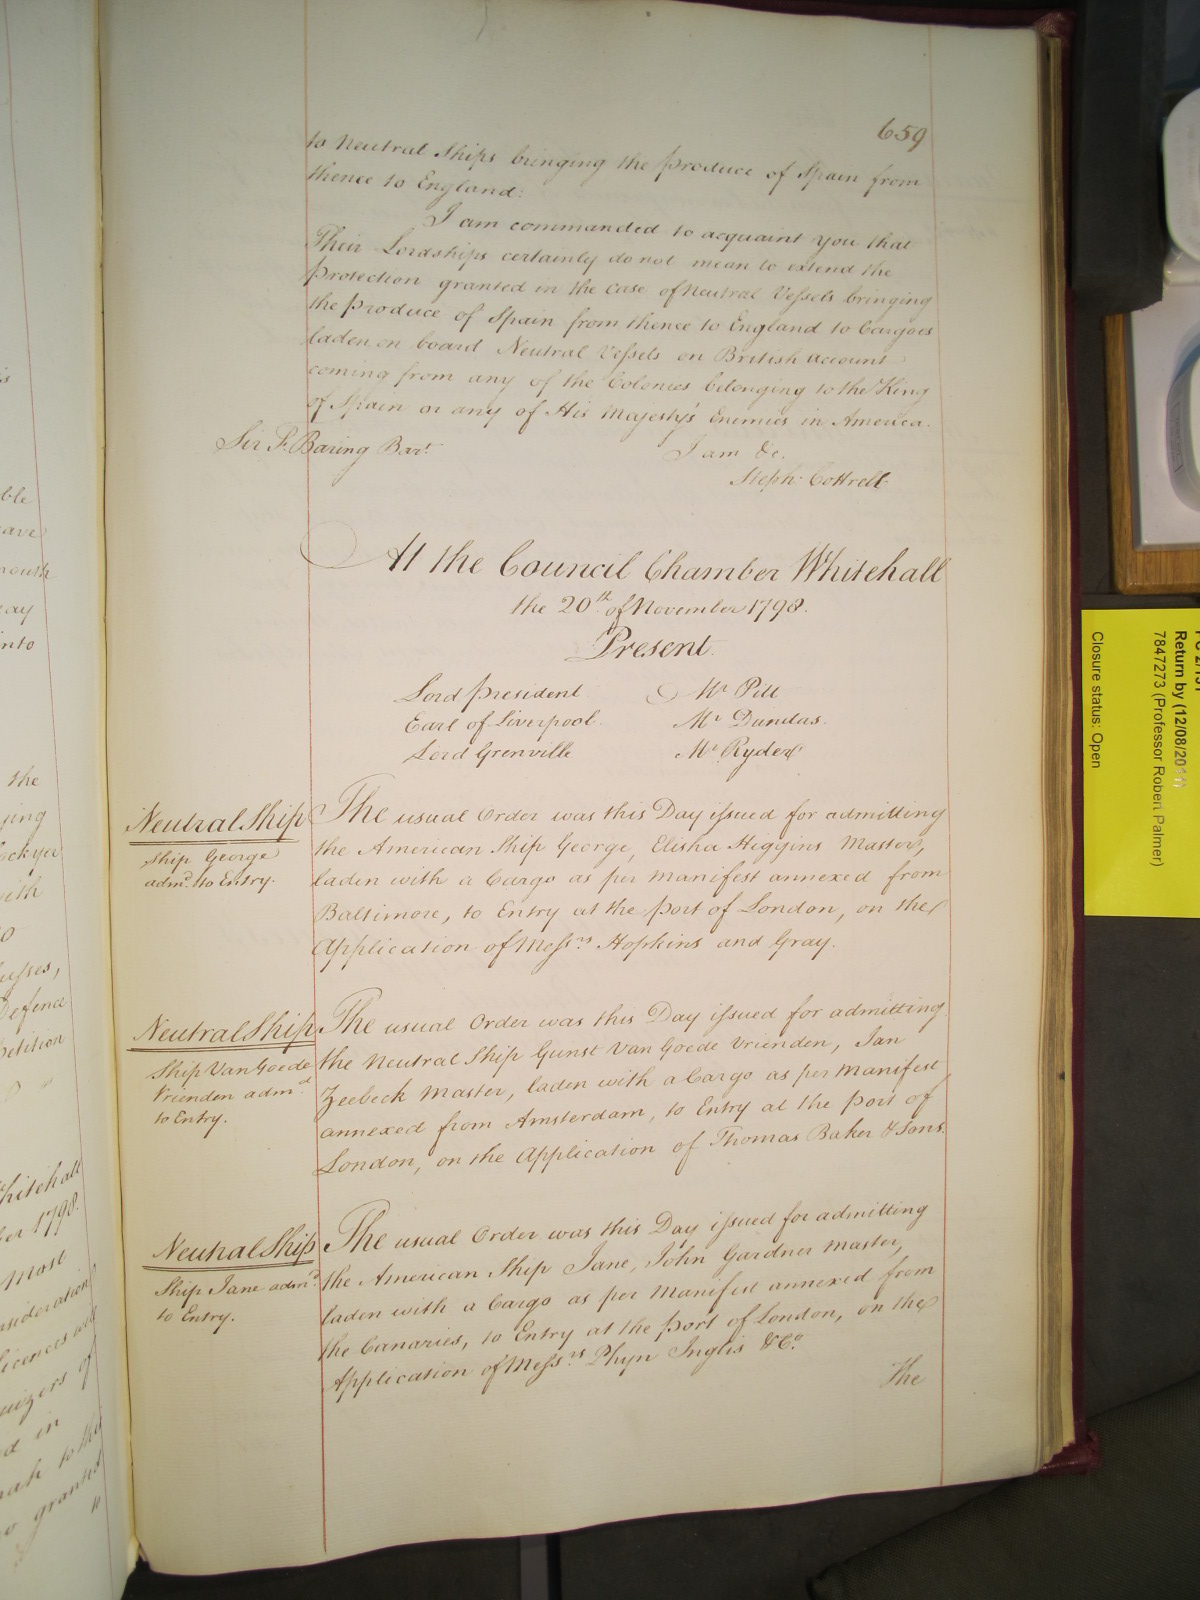 659
to Neutral Ships bringing the produce of Spain from
thence to England:
I am commanded to acquaint you that
Their Lordships certainly do not mean to extend the
Protection granted in the Case of Neutral Vessels bringing
the Produce of Spain from thence to England to Cargoes
laden on board Neutral Vessels on British Account
coming from any of the Colonies belonging to the King
of Spain or any of His Majesty's Enemies in America.
Sir F. Baring Bart.
I am &c.
Steph: Cottrell
At the Council Chamber Whitehall
the 20th of November 1798.
Present.
Lord President Mr Pitt
Earl of Liverpool. Mr Dundas.
Lord Grenville Mr Ryder
Neutral Ship
Ship George
admd. to Entry.
The usual Order was this Day issued for admitting
the American Ship George, Elisha Higgins Master,
laden with a Cargo as per Manifest annexed from
Baltimore, to Entry at the Port of London, on the
Application of Messrs Hopkins and Gray.
Neutral Ship
Ship Van Goede
Vrienden admd
to Entry.
The usual Order was this Day issued for admitting
the Neutral Ship Gunst Van Goede Vrienden, Jan
Zeebeck Master, laden with a Cargo as per Manifest
annexed from Amsterdam, to Entry at the Port of
London, on the Application of Thomas Baker & Sons.
Neutral Ship
Ship Jane admd
to Entry.
The usual Order was this Day issued for admitting
the American Ship Jane, John Gardner Master,
laden with a Cargo as per Manifest annexed from
the Canaries, to Entry at the Port of London, on the
Application of Messrs Phyn Inglis & Co.
The
Return by (12/08/2011)
7847273 (Professor Robert Palmer)
Closure status: Open
ble
ave
mouth
ay
into
the
ying
ockyer
with
Defence
petition
Whitehall
ber 1798.
Most
nsideration
Licences
uizers of
d in
to the
granted
to